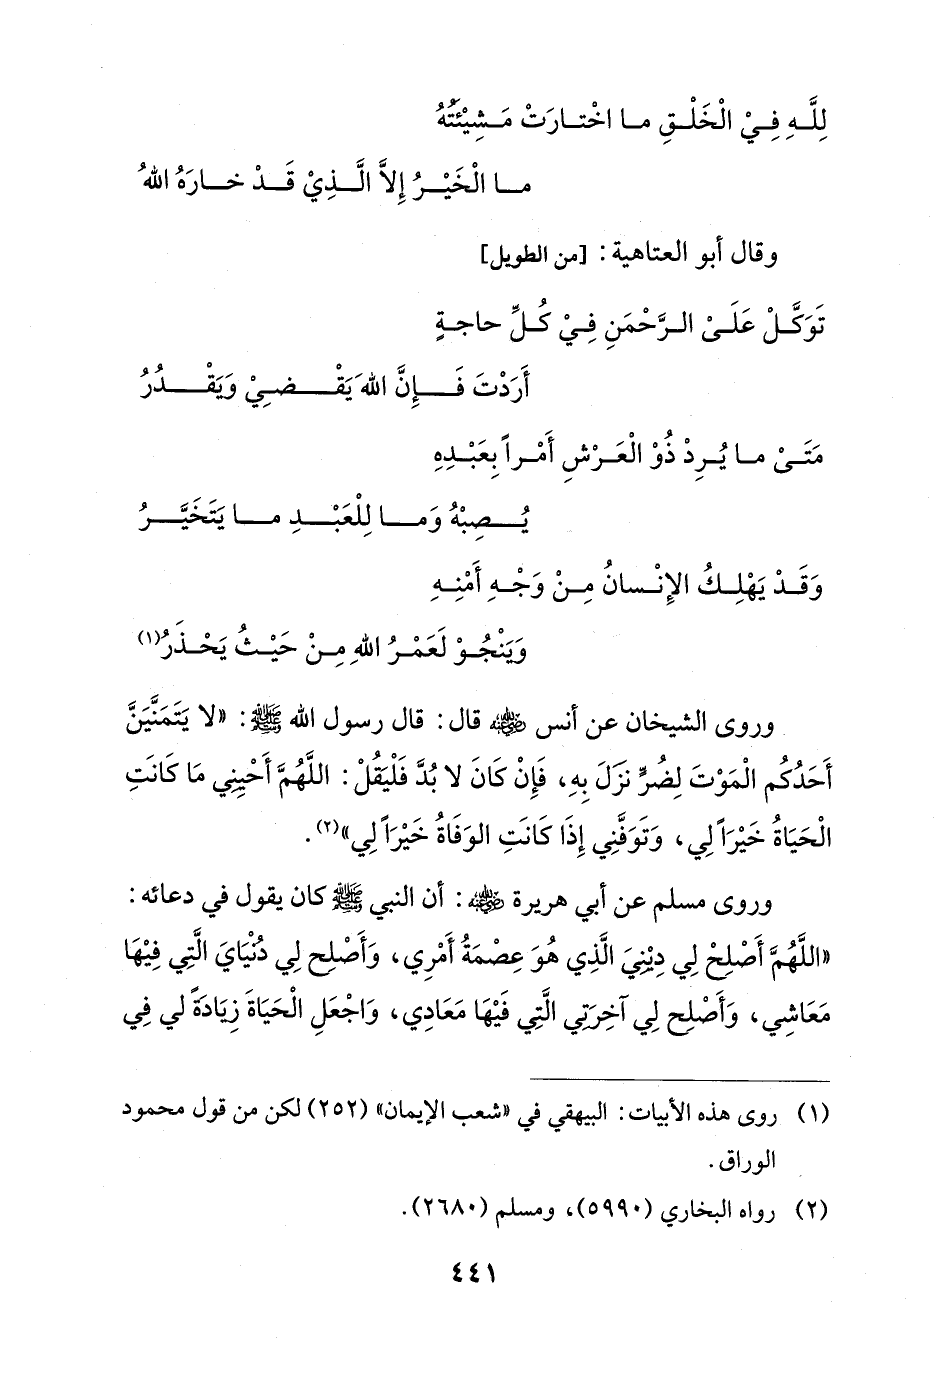 لِلَّهِ فِيْ الْخَلْقِ ما اخْتارَتْ مَشِيْئَتُهُ
ما الْخَيْرُ إِلاَّ الَّذِيْ قَدْ خارَهُ اللهُ
وقال أبو العتاهية: [من الطويل]
تَوَكَّلْ عَلَىْ الرَّحْمَنِ فِيْ كُلِّ حاجةٍ
أَرَدْتَ فَإِنَّ اللهَ يَقْضيِْ وَيَقْدُرُ
مَتَىْ ما يُرِدْ ذُوْ الْعَرْشِ أَمْراً بِعَبْدِهِ
يُصِبْهُ وَما لِلْعَبْدِ ما يَتَخَيَّرُ
وَقَدْ يَهْلِكُ الإِنْسانُ مِنْ وَجْهِ أَمْنِهِ
وَيَنْجُوْ لَعَمْرُ اللهِ مِنْ حَيْثُ يَحْذَرُ(١)
وروى الشيخان عن أنس رضي الله عنه قال: قال رسول الله ﷺ: «لا يَتَمَنَّيَنَّ
أَحَدُكُم الْمَوْتَ لِضُرٍّ نَزَلَ بِهِ، فَإِنْ كَانَ لا بُدَّ فَلْيَقُلْ: اللَّهُمَّ أَحْيِنِي مَا كَانَتِ
الْحَيَاةُ خَيْرَاً لِي، وَتَوَفَّنِي إِذَا كَانَتِ الوَفَاةُ خَيْرَاً لِي»(٢).
وروى مسلم عن أبي هريرة رضي الله عنه: أن النبي ﷺ كان يقول في دعائه:
«اللَّهُمَّ أَصْلِحْ لِي دِيْنِيَ الَّذِي هُوَ عِصْمَةُ أَمْرِي، وَأَصْلِح لِي دُنْيَايَ الَّتِي فِيْهَا
مَعَاشِي، وَأَصْلِح لِي آخِرَتِي الَّتِي فَيْهَا مَعَادِي، وَاجْعَلِ الْحَيَاةَ زِيَادَةً لي فِي
(١) روى هذه الأبيات: البيهقي في «شعب الإيمان» (٢٥٢) لكن من قول محمود
الوراق.
(٢) رواه البخاري (٥٩٩٠)، ومسلم (٢٦٨٠).
٤٤١